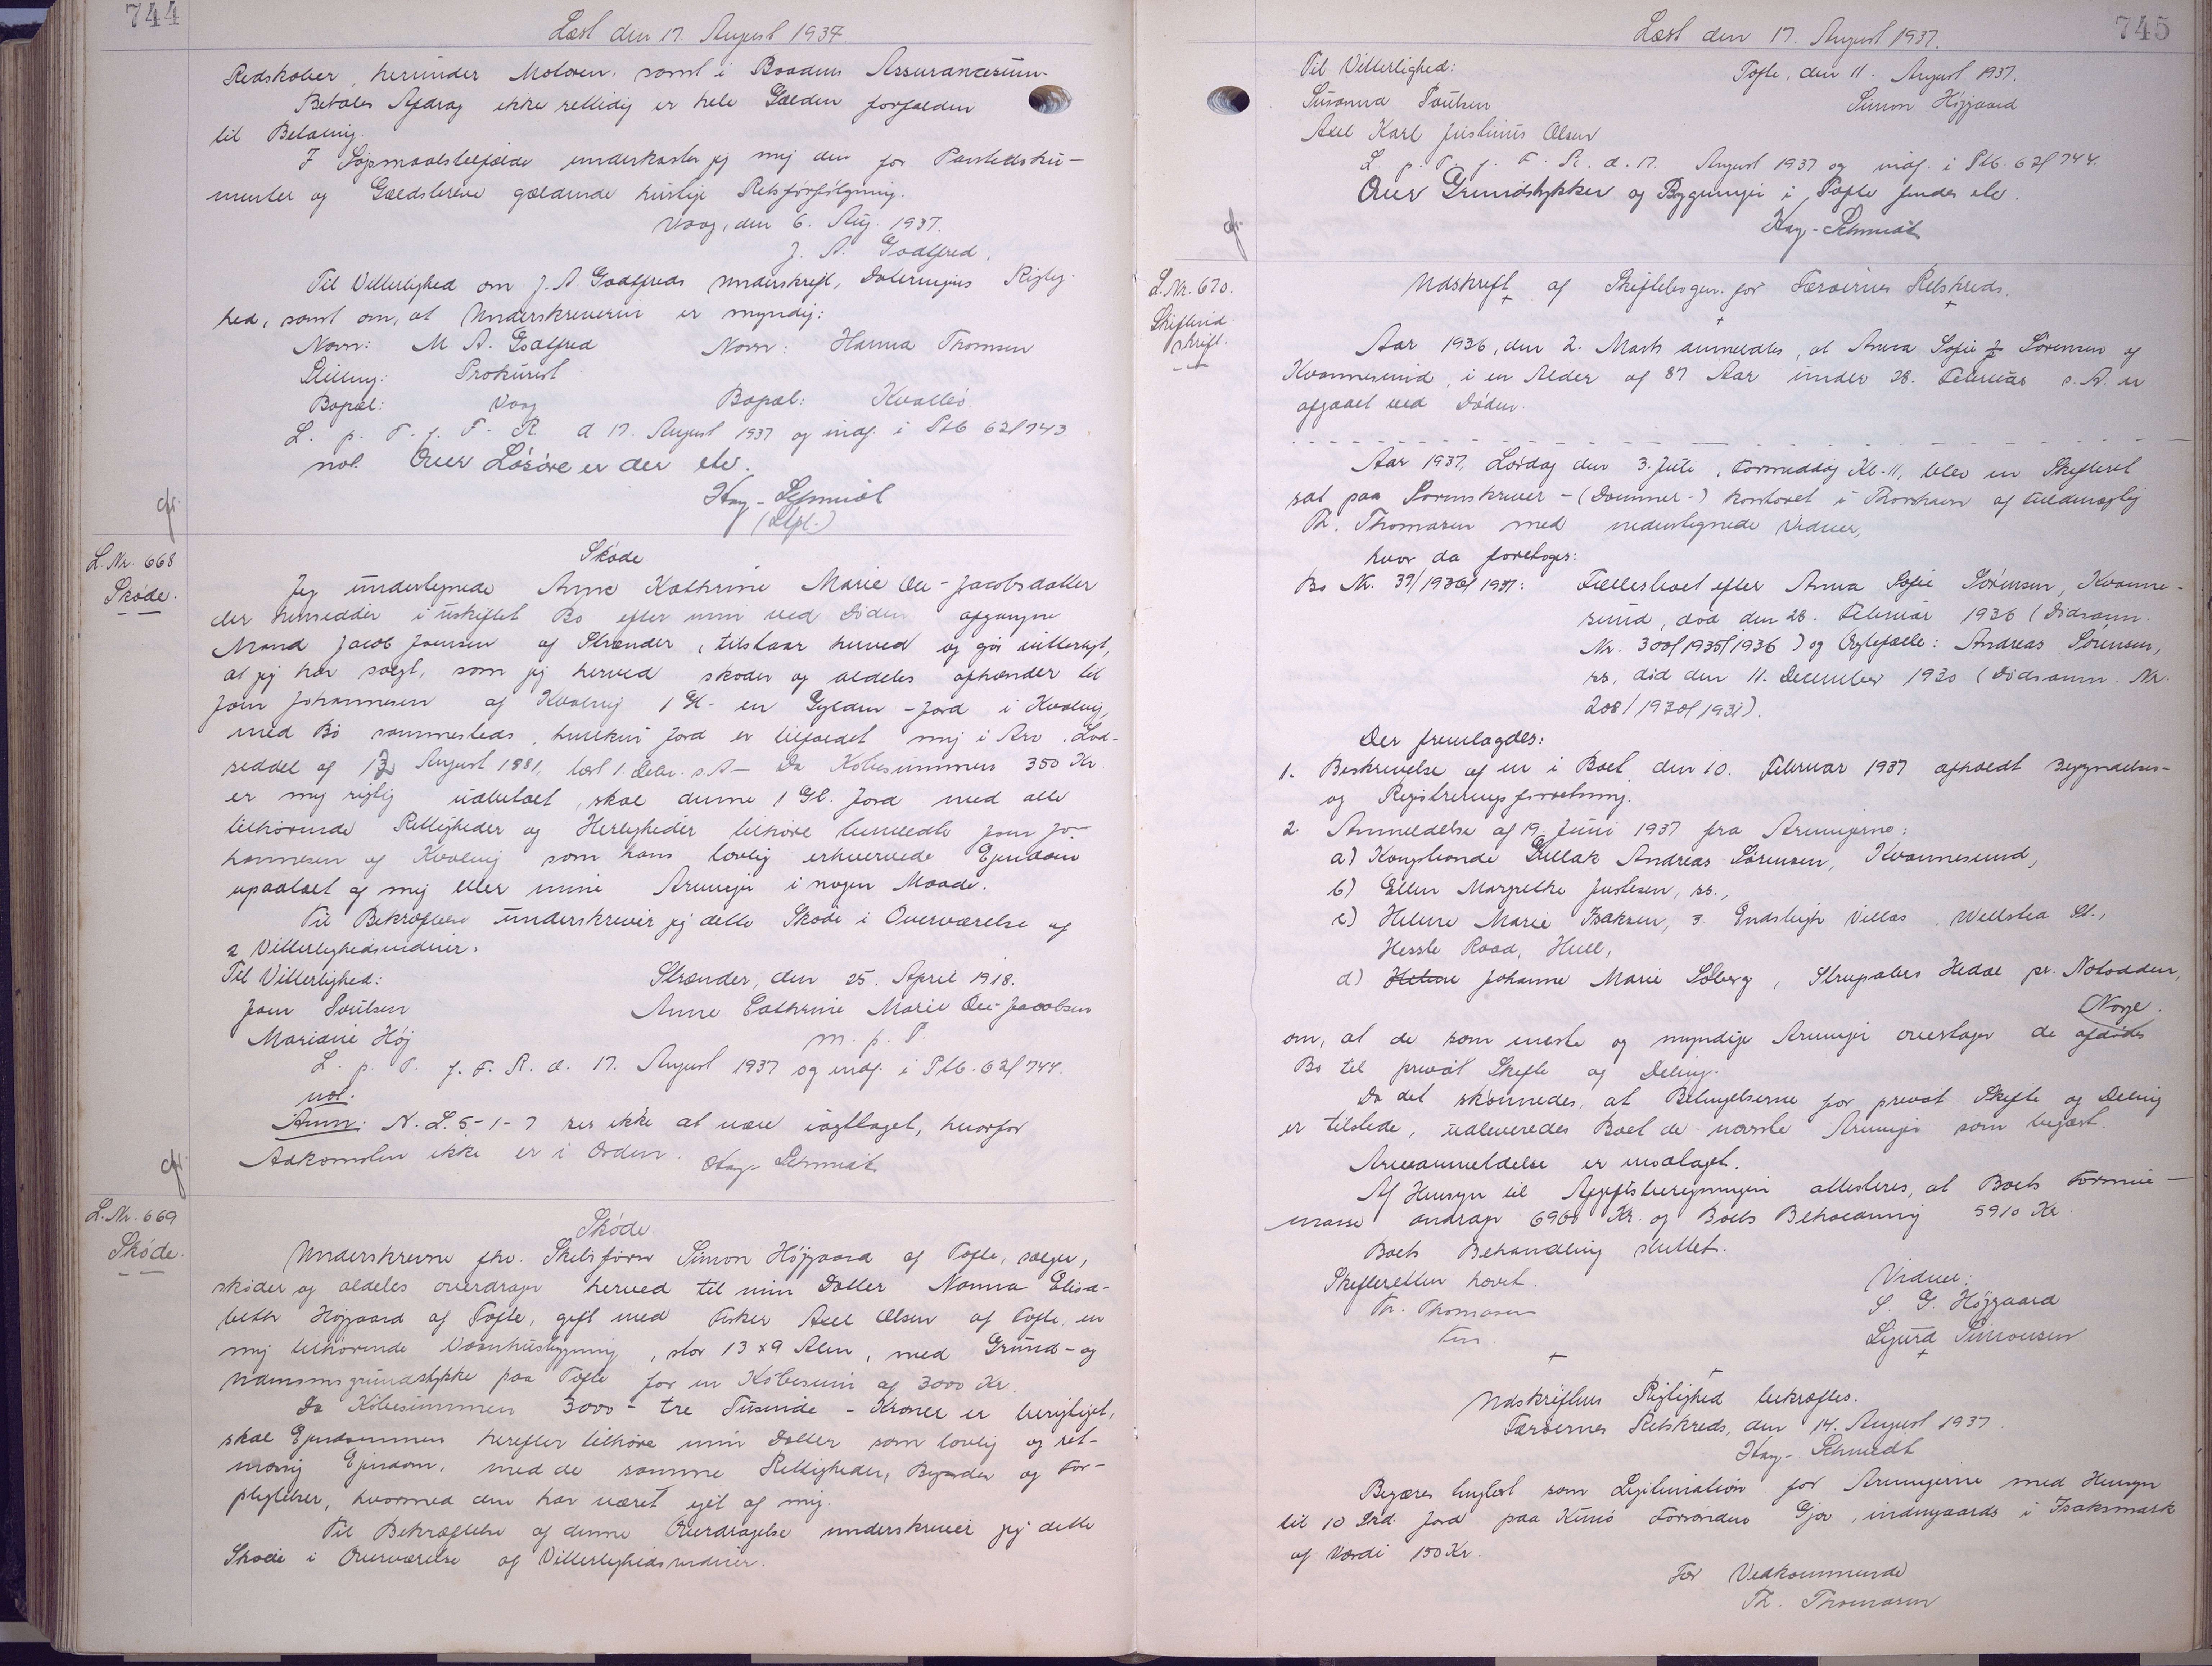 744
Læst den 17. August 1937.
Redskaber, herunder Motoren, samt i Baadens Assurancesum.
Betales Afdrag ikke rettidig er hele Gælden forfalden
til Betaling.
I Søgsmaalstilfælde underkaster jeg mig den for Pantedoku-
menter og Gældsbreve gældende hurtige Retsforfølgning.
Vaag, den 6. Aug. 1937.
J. A. Godtfred.
Til Vitterlighed om J. A. Godtfreds Underskrift, Dateringens Rigtig-
hed, samt om, at Underskriveren er myndig:
Navn: M. A. Godtfred Navn: Hanna Thomsen
Stilling: Prokurist
Bopæl: Vaag Bopæl: Kvalbø
L. p. T. f. F. R. d 17. August 1937 og indf. i Ptb 62/743.
not. Over Løsøre er der etv.
Hay-Schmidt
(Dfpl.)
cfr.
L. Nr. 668
Skøde.
Skøde
Jeg undertegnede Anne Kathrine Marie Ole-Jacobsdatter
der hensidder i uskiftet Bo efter min ved Døden afgangne
Mand Jacob Joensen af Strænder, tilstaar herved og gør vitterligt,
at jeg har solgt, som jeg herved skøder og aldeles afhænder til
Joen Johannesen af Kvalvig 1 Gl. en Gylden-Jord i Kvalvig,
med Bø sammesteds, hvilken Jord er tilfaldet mig i Arv. Lod-
seddel af 13 August 1881, læst 1. Debr. s.A- Da Købesummen 350 Kr.
er mig rigtig udbetalt, skal denne 1 Gl. Jord med alle
tilhørende Rettigheder og Herligheder tilhøre bemeldte Joen Jo-
hannesen af Kvalvig som hans lovlig erhvervede Ejendom
upaatalt af mig eller mine Arvinger i nogen Maade.
Til Bekræftelse underskriver jeg dette Skøde i Overværelse af
2 Vitterlighedsvidner.
Til Vitterlighed: Strænder, den 25. April 1918.
Joen Poulsen Anne Cathrine Marie Ole-Jacobsen
Mariane Høj m. p. P.
L. p. T. f. F. R. d. 17. August 1937 og indf. i Ptb. 62/744.
not.
Anm: N. L. 5-1-7 ses ikke at være iagttaget, hvorfor
Adkomsten ikke er i Orden. Hay-Schmidt
cfr.
L. Nr. 669
Skøde.
Skøde.
Underskrevne fhv. Skibsfører Simon Højgaard af Tofte, sælger,
skøder og aldeles overdrager herved til min Datter Nanna Elisa-
beth Højgaard af Tofte, gift med Fisker Axel Olsen af Tofte, en
mig tilhørende Vaanhusbygning, stor 13 x 9 Alen, med Grund- og
Udenomsgrundstykke paa Tofte for en Købesum af 3000 Kr.
Da Købesummen 3000 - tre Tusinde - Kroner er berigtiget,
skal Ejendommen herefter tilhøre min Datter som lovlig og ret-
mæssig Ejendom, med de samme Rettigheder, Byrder og For-
pligtelser, hvormed den har været ejet af mig.
Til Bekræftelse af denne Overdragelse underskriver jeg dette
Skøde i Overværelse af Vitterlighedsvidner.
745
Læst den 17. August 1937.
Til Vitterlighed: Tofte, den 11. August 1937.
Susanna Poulsen Simon Højgaard
Axel Karl Justinus Olsen
L. p. T. f. F. R. d. 17. August 1937 og indf. i Ptb. 62/744.
Over Grundstykker og Bygninger i Tofte findes etv.
Hay-Schmidt
cfr.
L. Nr. 670.
Skifteud-
skrift.
Udskrift af Skiftebogen for Færøernes Retskreds.
Aar 1936, den 2. Marts anmeldtes, at Anna Sofie Sørensen af
Kvannesund, i en Alder af 87 Aar under 28. Februar s. A. er
afgaaet ved Døden.
Aar 1937, Lørdag den 3. Juli, Formiddag Kl. 11, blev en Skifteret
sat paa Sorenskriver-(Dommer-)kontoret i Thorshavn af Fuldmægtig
Th. Thomasen med undertegnede Vidner,
hvor da foretoges:
Bo Nr. 39/1936/1937: Fællesboet efter Anna Sofie Sørensen, Kvanne-
sund, død den 28. Februar 1936 (Dødsanm.
Nr. 300/1935/1936) og Ægtefælle: Andreas Sørensen,
ss, død den 11. December 1930 (Dødsanm. Nr.
208/1930/1931).
Der fremlagdes:
1. Beskrivelse af en i Boet den 10. Februar 1937 afholdt Begyndelses-
og Registreringsforretning.
2 Anmeldelse af 19. Juni 1937 fra Arvingerne:
a) Kongsbonde Gullak Andreas Sørensen, Kvannesund,
b) Ellen Margrethe Justesen, ss.,
c) Helene Marie Isaksen, 3. Endsleigh Villas, Wellstea St.,
Hessle Road, Hull,
d) Helene Johanne Marie Solberg, Strupabers Hedal pr. Notodden,
Norge.
om, at de som eneste og myndige Arvinger overtager de afdødes
Bo til privat Skifte og Deling.
Da det skønnedes, at Betingelserne for privat Skifte og Deling
er tilstede, udleveredes Boet de nævnte Arvinger som begært.
Arveanmeldelse er modtaget.
Af Hensyn til Afgiftsberegningen attesteres, at Boets Formue-
masse andrager 6960 Kr. og Boets Beholdning 5910 Kr.
Boets Behandling sluttet.
Skifteretten hævet. Vidner:
Th. Thomasen S. G. Højgaard
Fm. Sigurd Simonsen
Udskriftens Rigtighed bekræftes.
Færøernes Retskreds, den 14. August 1937.
Hay-Schmidt
Begæres tinglæst som Legitimation for Arvingerne med Hensyn
til 10 Skd. Jord paa Kunø Forordens Gjov, indengaards i Isaksmark
af Værdi 150 Kr.
For Vedkommende
Th. Thomasen